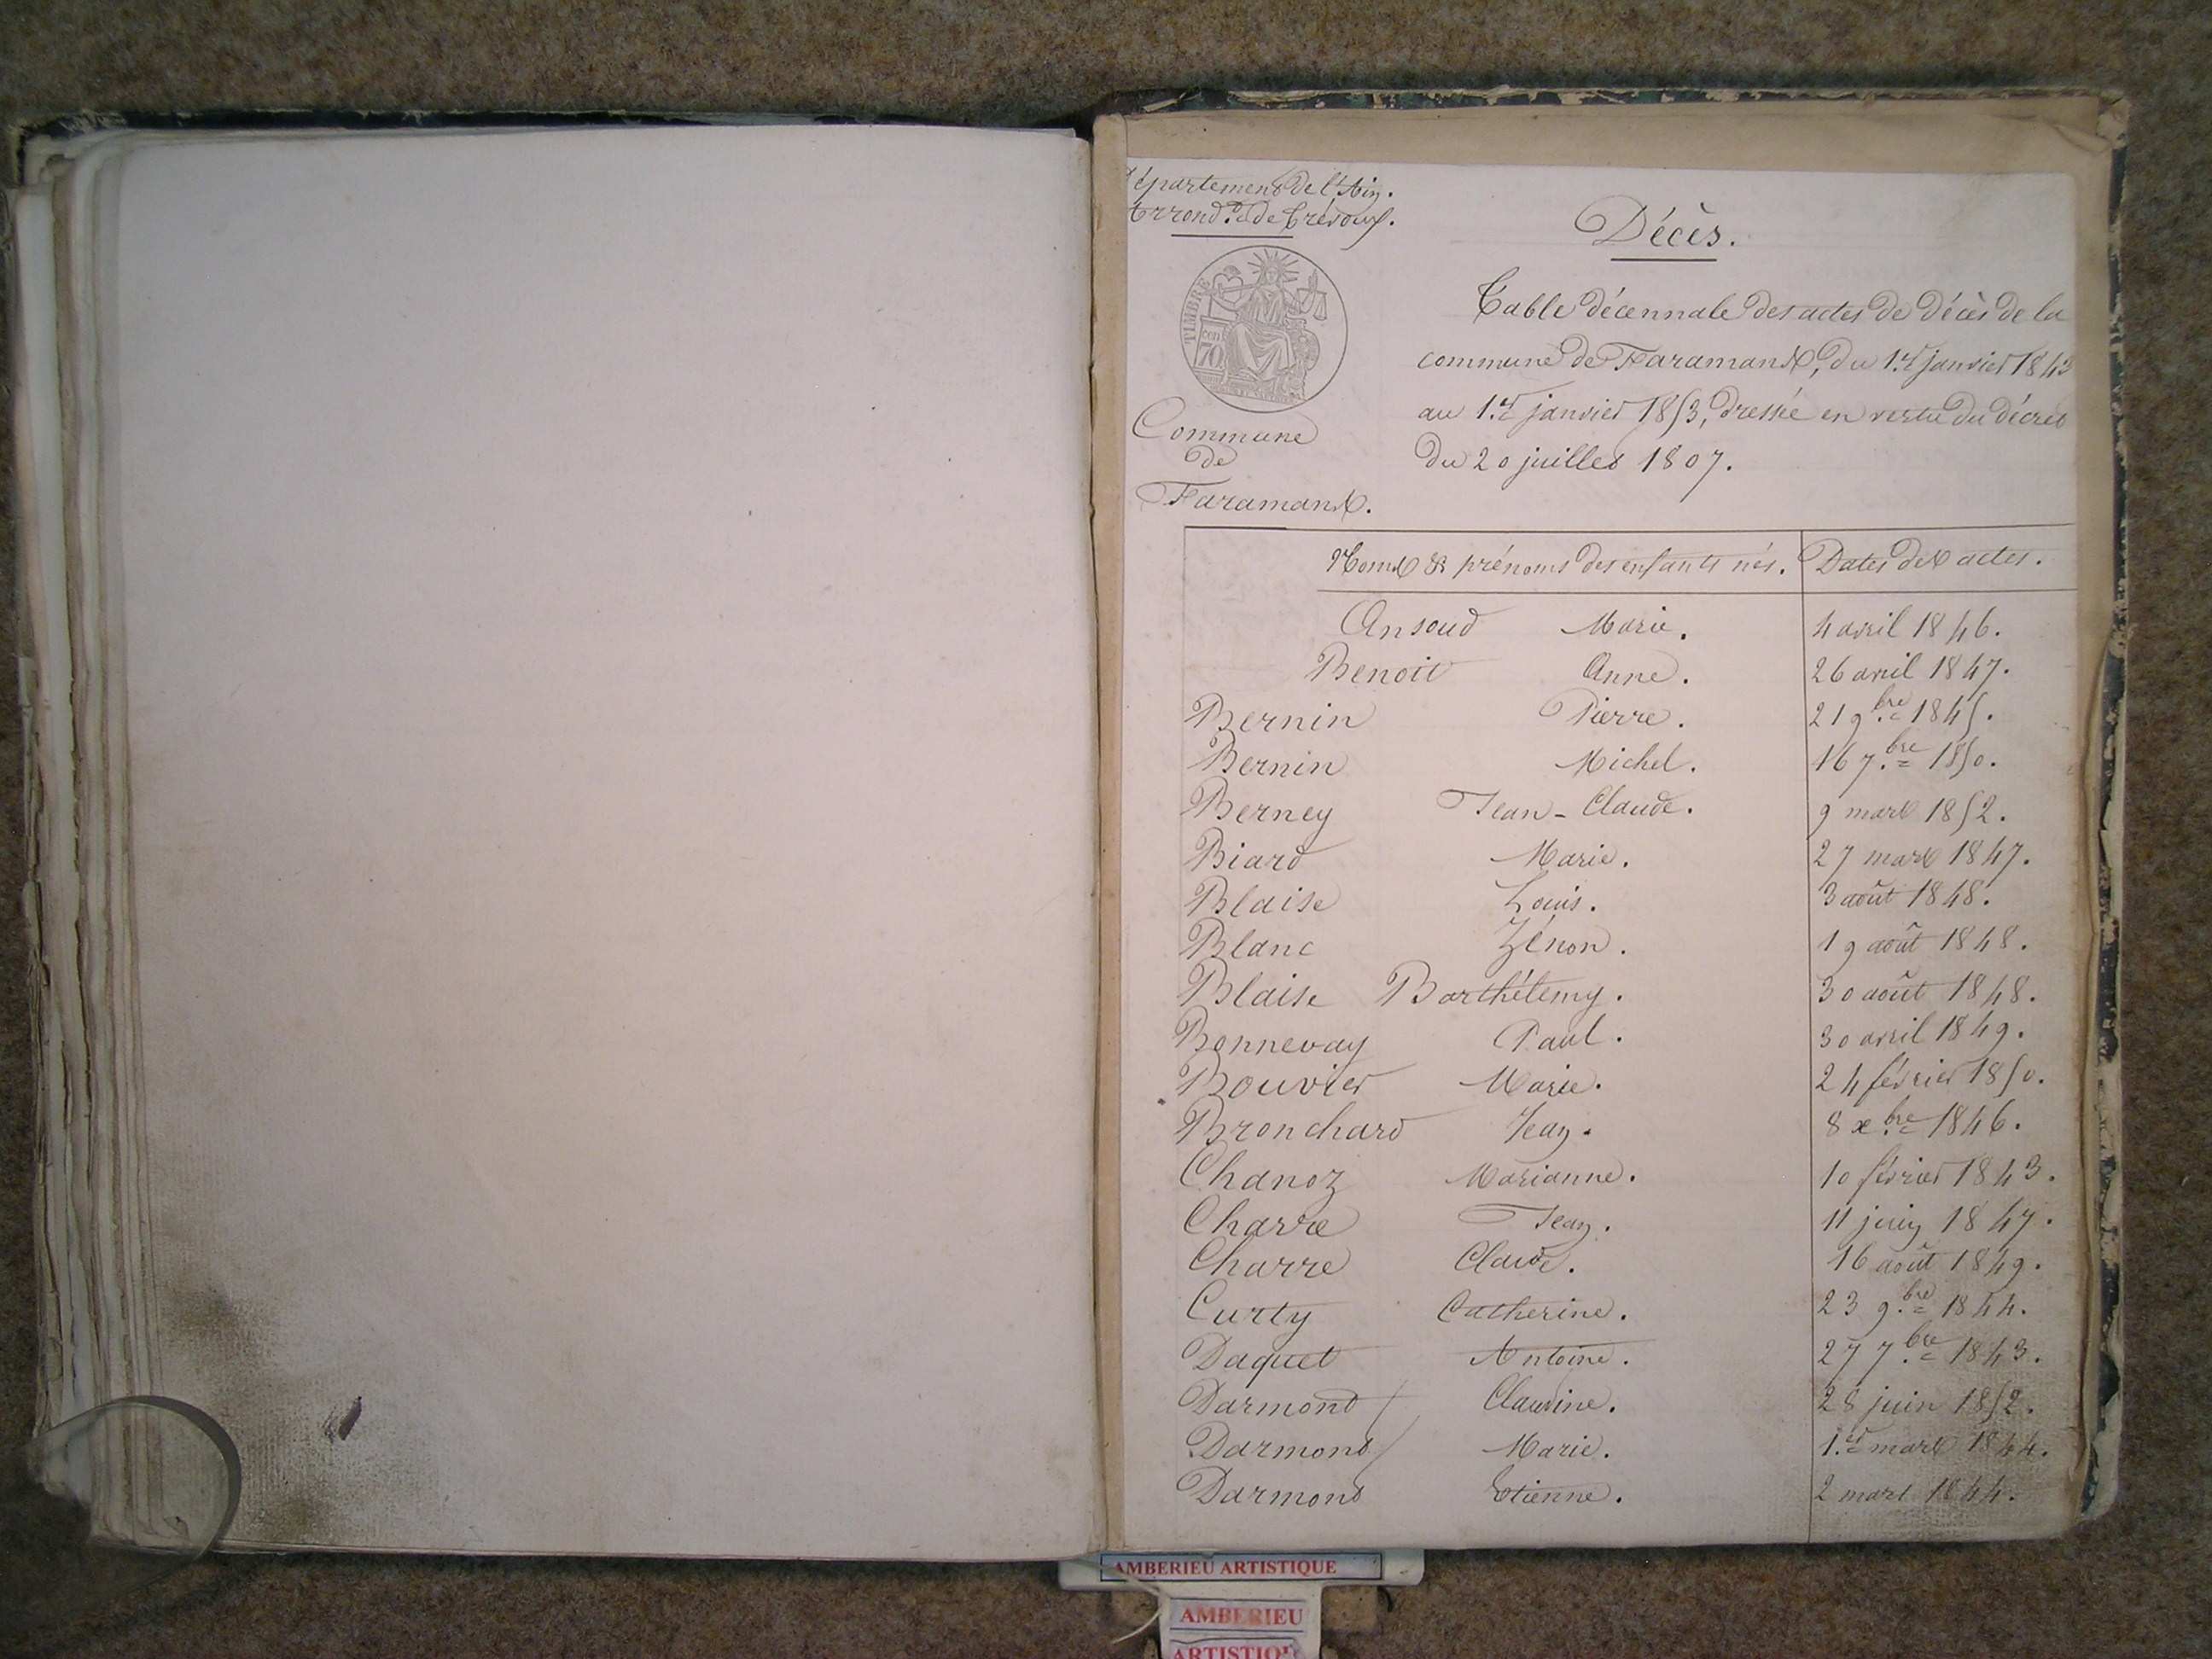 Département de l'Ain.
Arrond.t de Trévoux.
TIMBRE
70
Commune
de
Faramans.
Décès.
Table décennale des actes de décès de la
commune de Faramans, du 1.er janvier 1843
au 1.er janvier 1853, dressée en vertu du décret
du 20 juillet 1807.
Noms & prénoms des enfants nés. Dates des actes.
Ansoud Marie. 4 avril 1846.
Benoit Anne. 26 avril 1847.
Bernin Pierre. 21 9.bre 1845.
Bernin Michel. 16 7.bre 1850.
Berney Jean-Claude. 9 mars 1852.
Biard Marie. 27 mars 1847.
Blaise Louis. 3 août 1848.
Blanc Zénon. 19 août 1848.
Blaise Barthélemy. 30 août 1848.
Bonnevay Paul. 30 avril 1849.
Bouvier Marie. 24 février 1850.
Bronchard Jean. 8 xbre 1846.
Chanoz Marianne. 10 février 1843.
Charre Jean. 11 juin 1847.
Charre Claude. 16 août 1849.
Curty Catherine. 23 9.bre 1844.
Daquet Antoine. 27 7.bre 1843.
Darmond Claudine. 28 juin 1852.
Darmond Marie. 1.er mars 1844.
Darmond Etienne. 2 mars 1844.
AMBERIEU ARTISTIQUE
AMBERIEU